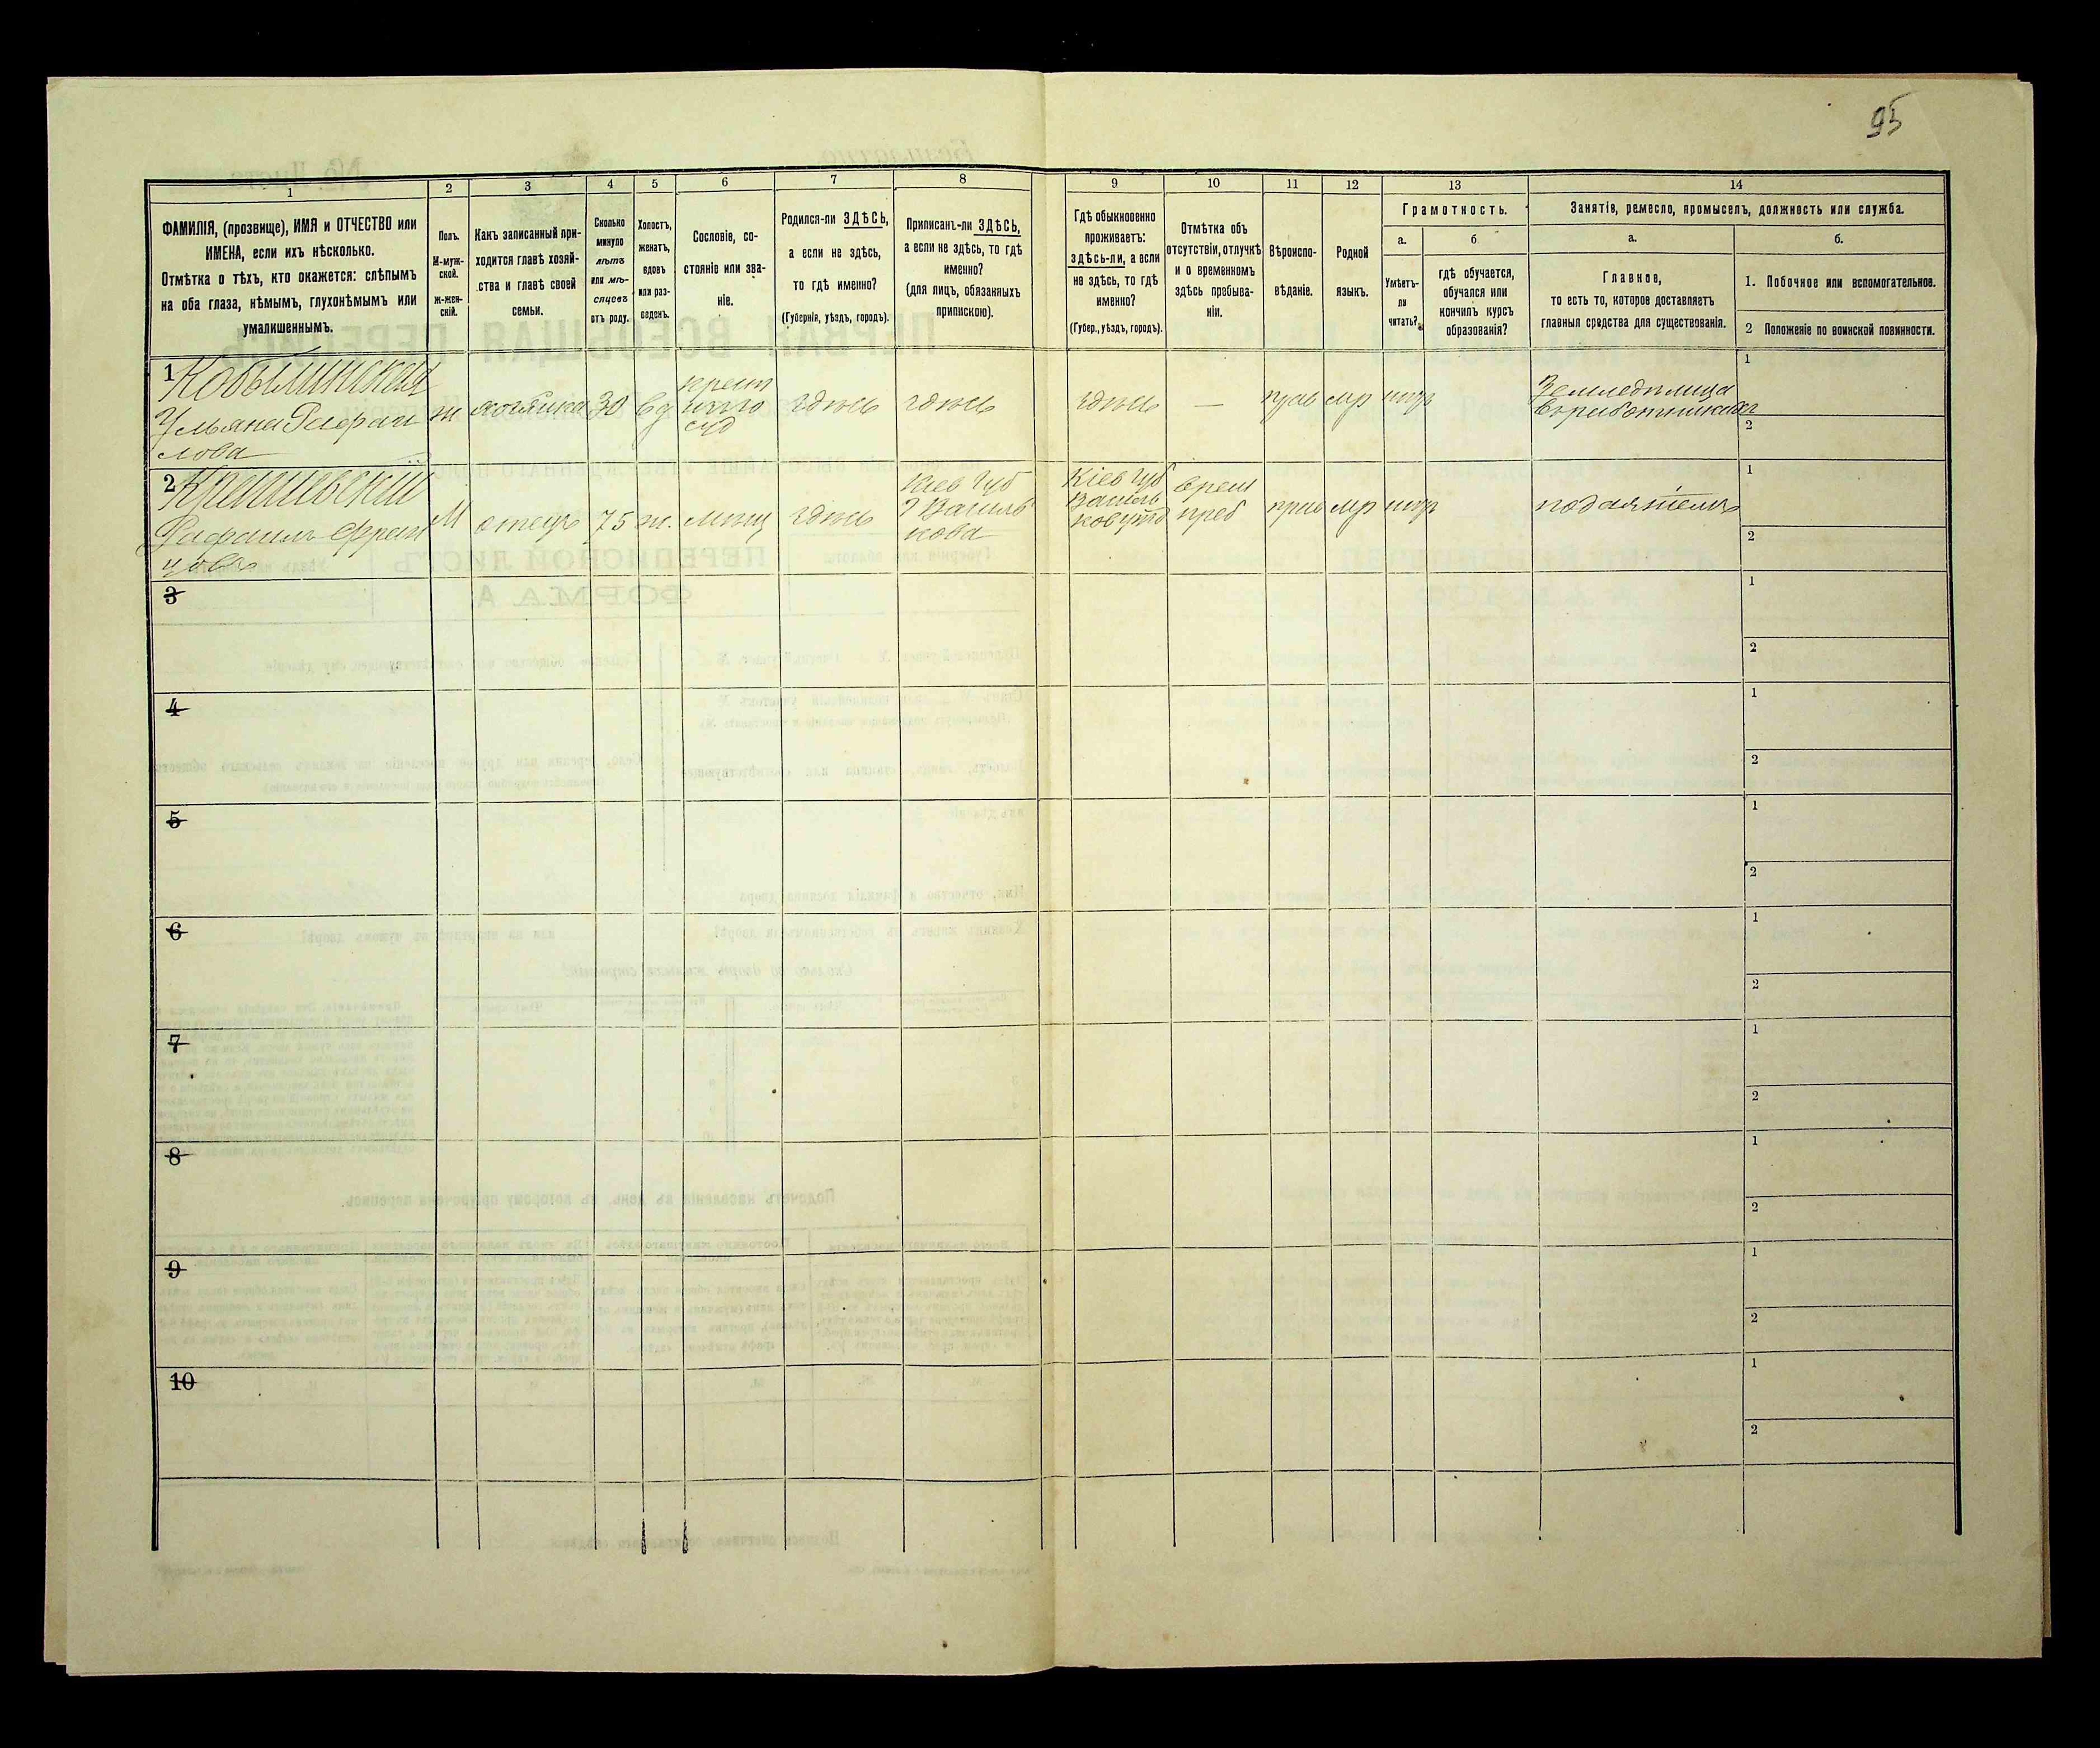 95
1 2 3 4 5 6 7 8 9 10 11 12 13 14
ФАМИЛІЯ, (прозвище), ИМЯ и ОТЧЕСТВО или
ИМЕНА, если ихъ нѣсколько.
Отмѣтка о тѣхъ, кто окажется: слѣпымъ
на оба глаза, нѣмымъ, глухонѣмымъ или
умалишеннымъ.
Полъ.
М-муж-
ской.
ж-жен-
скій.
Какъ записанный при-
ходится главѣ хозяй-
ства и главѣ своей
семьи.
Сколько
минуло
лѣтъ
или мѣ-
сяцевъ
отъ роду.
Холостъ,
женатъ,
вдовъ
или раз-
веденъ.
Сословіе, со-
стояніе или зва-
ніе.
Родился-ли ЗДѢСЬ,
а если не здѣсь,
то гдѣ именно?
(Губернія, уѣздъ, городъ).
Приписанъ-ли ЗДѢСЬ,
а если не здѣсь, то гдѣ
именно?
(для лицъ, обязанныхъ
припискою).
Гдѣ обыкновенно
проживаетъ:
ЗДѢСЬ-ли, а если
не здѣсь, то гдѣ
именно?
(Губер., уѣздъ, городъ).
Отмѣтка объ
отсутствіи, отлучкѣ
и о временномъ
здѣсь пребыва-
ніи.
Вѣроиспо-
вѣданіе.
Родной
языкъ.
Грамотность.
а.
Умѣетъ-
ли
читать?
б
гдѣ обучается,
обучался или
кончилъ курсъ
образованія?
Занятіе, ремесло, промыселъ, должность или служба.
а.
Главное,
то есть то, которое доставляетъ
главныя средства для существованія.
б.
1. Побочное или вспомогательное.
2 Положеніе по воинской повинности.
1 Кобылинская
Ульяна Рафаи
лова
ж
хозяйка
30
вд
крест
суд
здѣсь
здѣсь
здѣсь
—
прав
мр
Земледѣлица
1
2
2
Рафаилъ Фран
цовъ
М
отецъ
75
ж.
мѣщ
здѣсь
Кіев Губ
Г Василь
кова
Кіев Губ
Василь
ков уѣзд
врем
преб
прав
мр
подаянiемъ
1
2
3
1
2
4
1
2
5
1
2
6
1
2
7
1
2
8
1
2
9
1
2
10
1
2